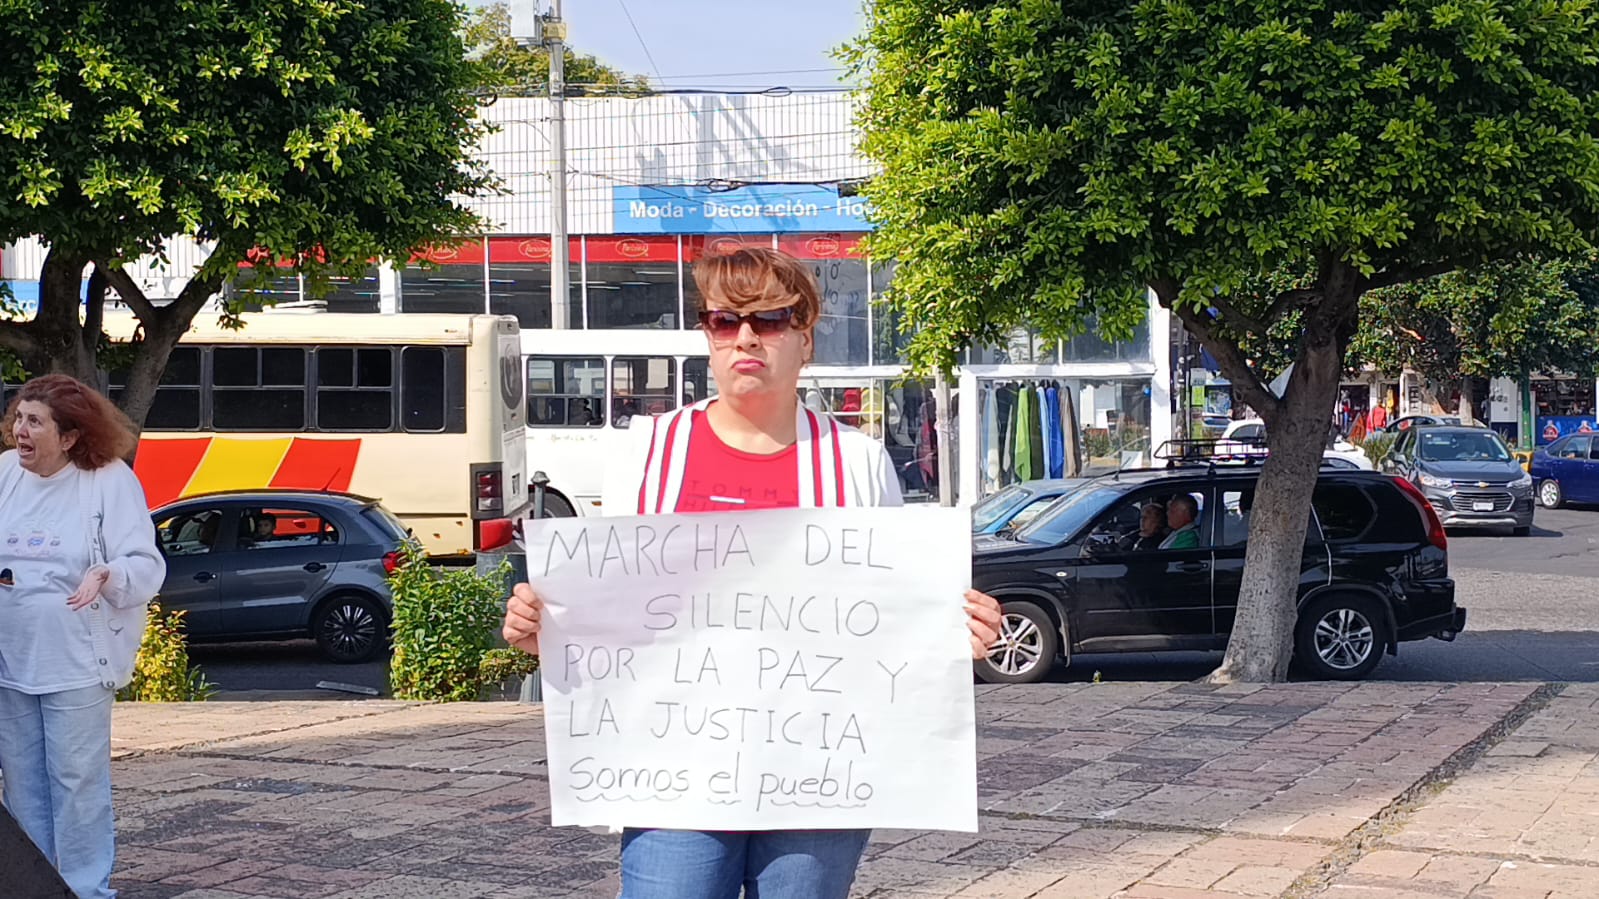 Moda - Decoración - Ho
Parisina
Parisina
Parisina
Parisina
TOMMY
MARCHA DEL
SILENCIO
POR LA PAZ Y
LA JUSTICIA
Somos el pueblo